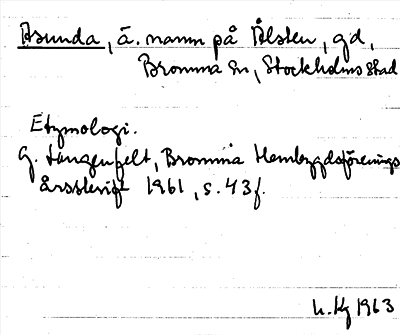 Åsunda, ä. namn på Ålsten, gd,
Bromma sn, Stockholms stad
Etymologi.
G. Langenfelt, Bromma Hembygdsförenings
årsskrift 1961, s. 43 f.
1963